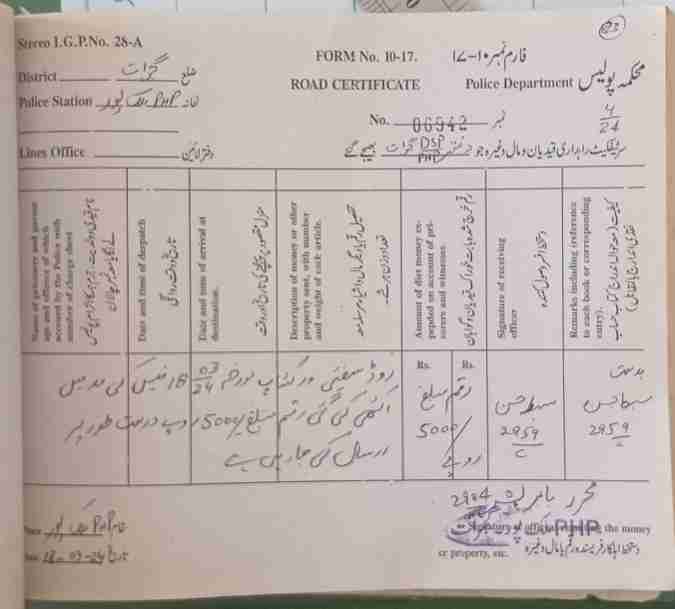 23
Stereo I.G.P.No. 28-A
FORM No. 10-17. فارم نمبر ۱۰-۱۷
District گجرات ضلع
ROAD CERTIFICATE
Police Department محکمہ پولیس
Police Station PHP تھانہ
No. 06942 نمبر
4/24
Lines Office دفتر لائن
سرٹیفکیٹ راہداری قیدیان و مال وغیرہ جو DSP PHP گجرات بھیجے گئے
Name of prisoners and parentage and offence of which accused by the Police with number of charge sheet
Date and time of despatch
تاریخ و وقت روانگی
Date and time of arrival at destination.
Description of money or other property sent, with number and weight of each article.
Amount of diet money expended on account of prisoners and witnesses.
Signature of receiving officer
دستخط افسر وصول کنندہ
Remarks including (reference to each book or corresponding entry).
Rs. Rs.
روڈ سیفٹی ورکشاپ مورخہ 18 03/24 فیس کی مد میں
اکٹھی کی گئی رقم مبلغ 5000/ روپے درست طور پر
ارسال کی جا رہی ہے
رقم مبلغ
5000/
روپے
2959/C
بدست
2959/C
محرر 2984
PHP
Signature of officer sending the money or property, etc.
دستخط اہلکار فریسندہ رقم یا مال وغیرہ
Place PHP مقام
Date 18-03-24 تاریخ